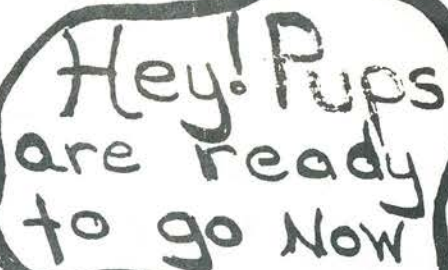 Hey! Pups
are ready
to go Now